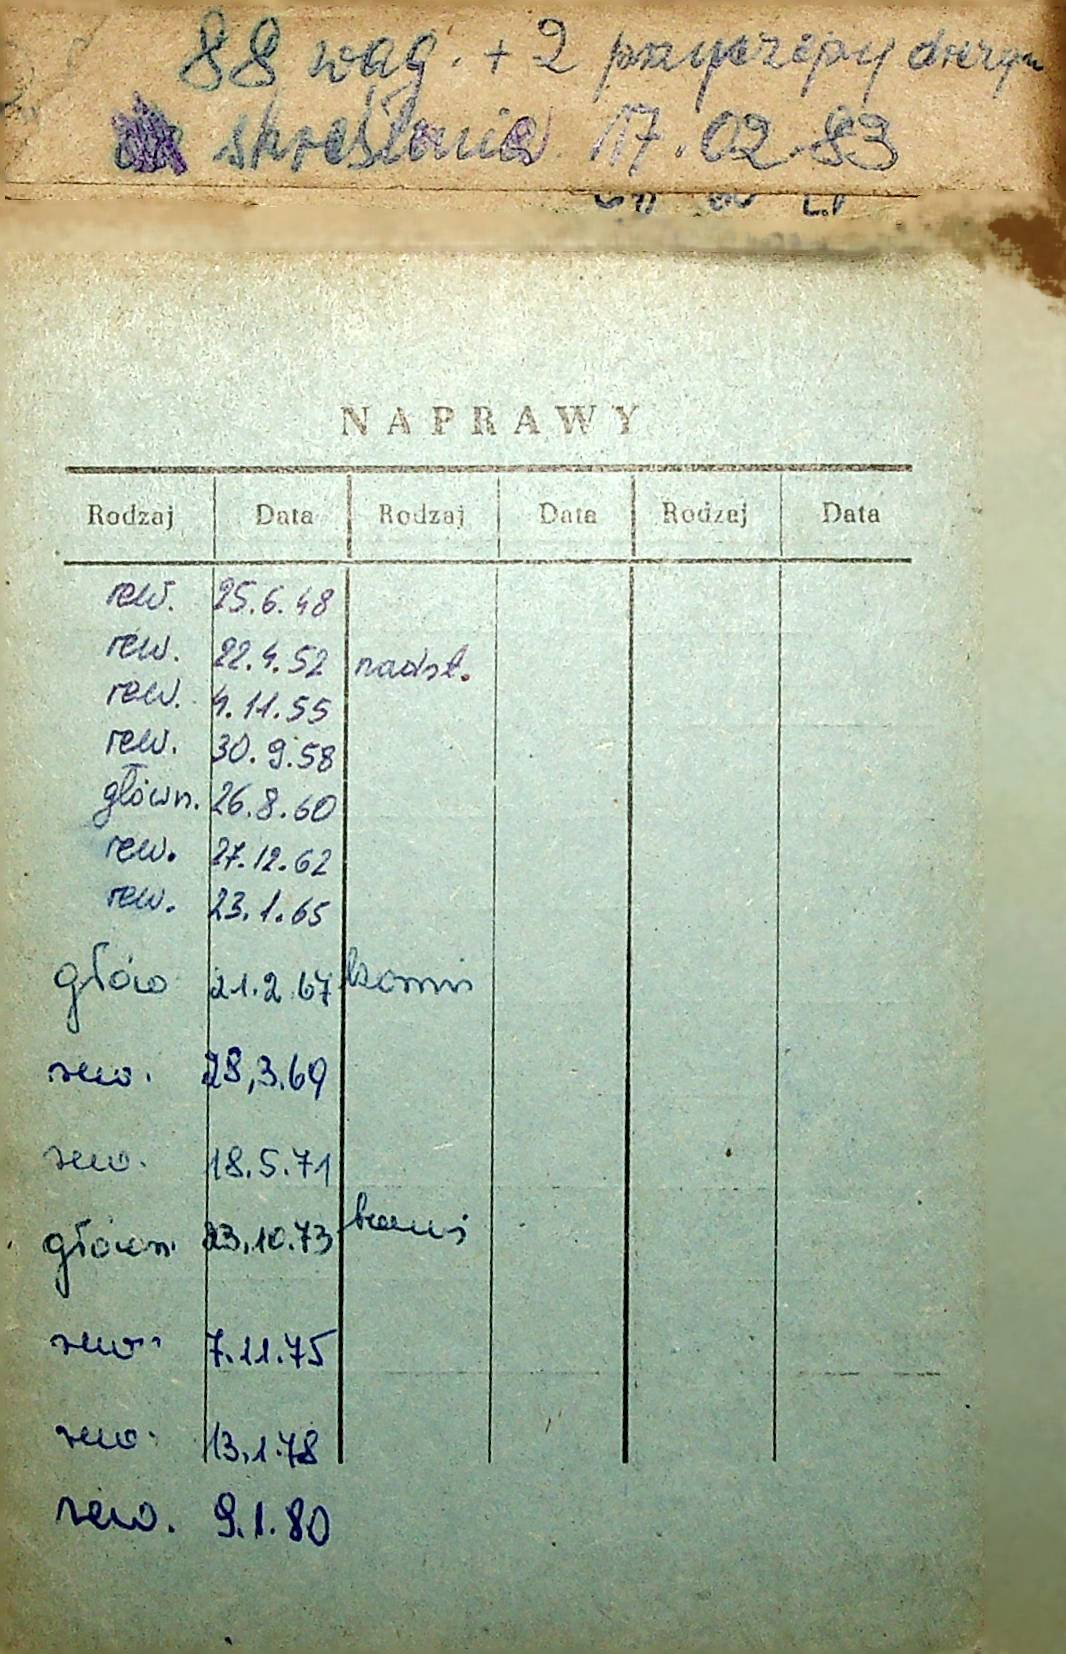 88 wag. + 2 przyczepy drezyn
skreślenia 17.02.83
NAPRAWY
Rodzaj Data Rodzaj Data Rodzaj Data
rew. 25.6.48
rew. 22.4.52 nadst.
rew. 4.11.55
rew. 30.9.58
główn. 26.8.60
rew. 27.12.62
rew. 23.1.65
głów 21.2.67
rew. 28,3.69
rew. 18.5.71
główn. 23.10.73
rew. 7.11.75
rew. 13.1.78
rew. 9.1.80